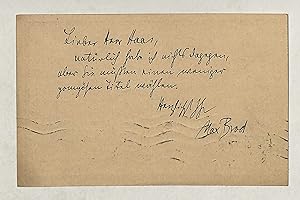 Lieber Herr Haas,
natürlich habe ich nichts dagegen,
aber Sie müssen einen weniger
komischen Titel wählen.
Herzlichst Ihr
Max Brod